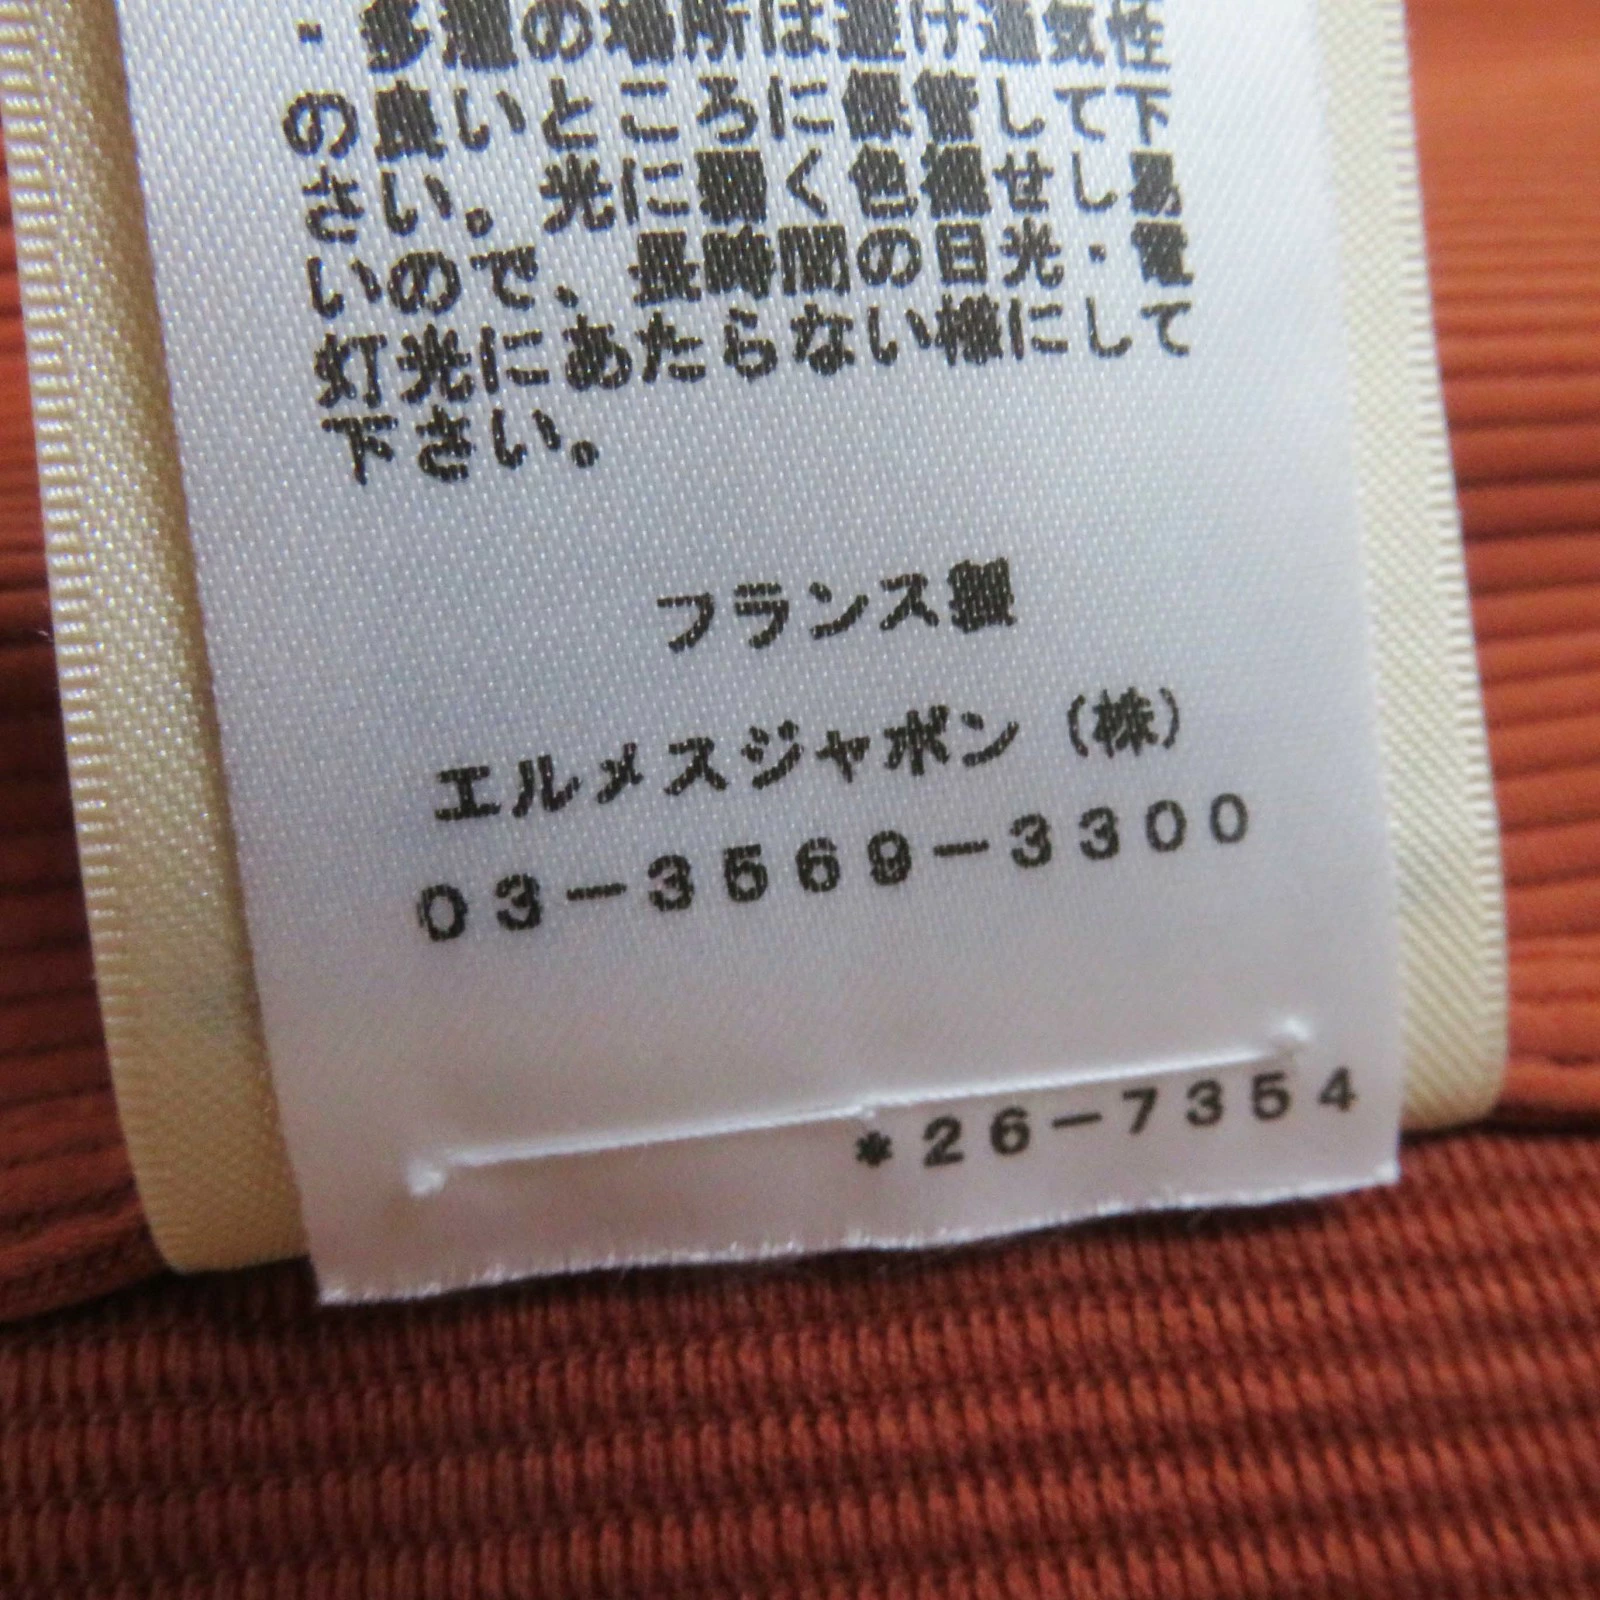 ・多湿の場所は避け通気性
の良いところに保管して下
さい。光に弱く色褪せし易
いので、長時間の日光・電
灯光にあたらない様にして
下さい。
フランス製
エルメスジャポン（株）
03-3569-3300
*26-7354